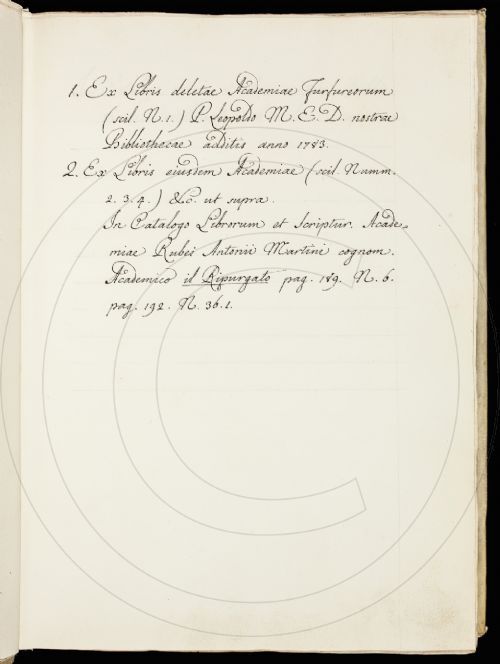 1. Ex Libris deletae Academiae Furfureorum
(scil. N. 1.) P. Leopoldo M. E. D. nostrae
Bibliothecae additis anno 1783.
2. Ex Libris eiusdem Academiae (scil. Numm.
2. 3. 4.) &c. ut supra.
In Catalogo Librorum et Scriptur. Acade-
miae Rubei Antonii Martini cognom.
Academico il Ripurgato pag. 189. N. 6.
pag. 192. N. 36. 1.